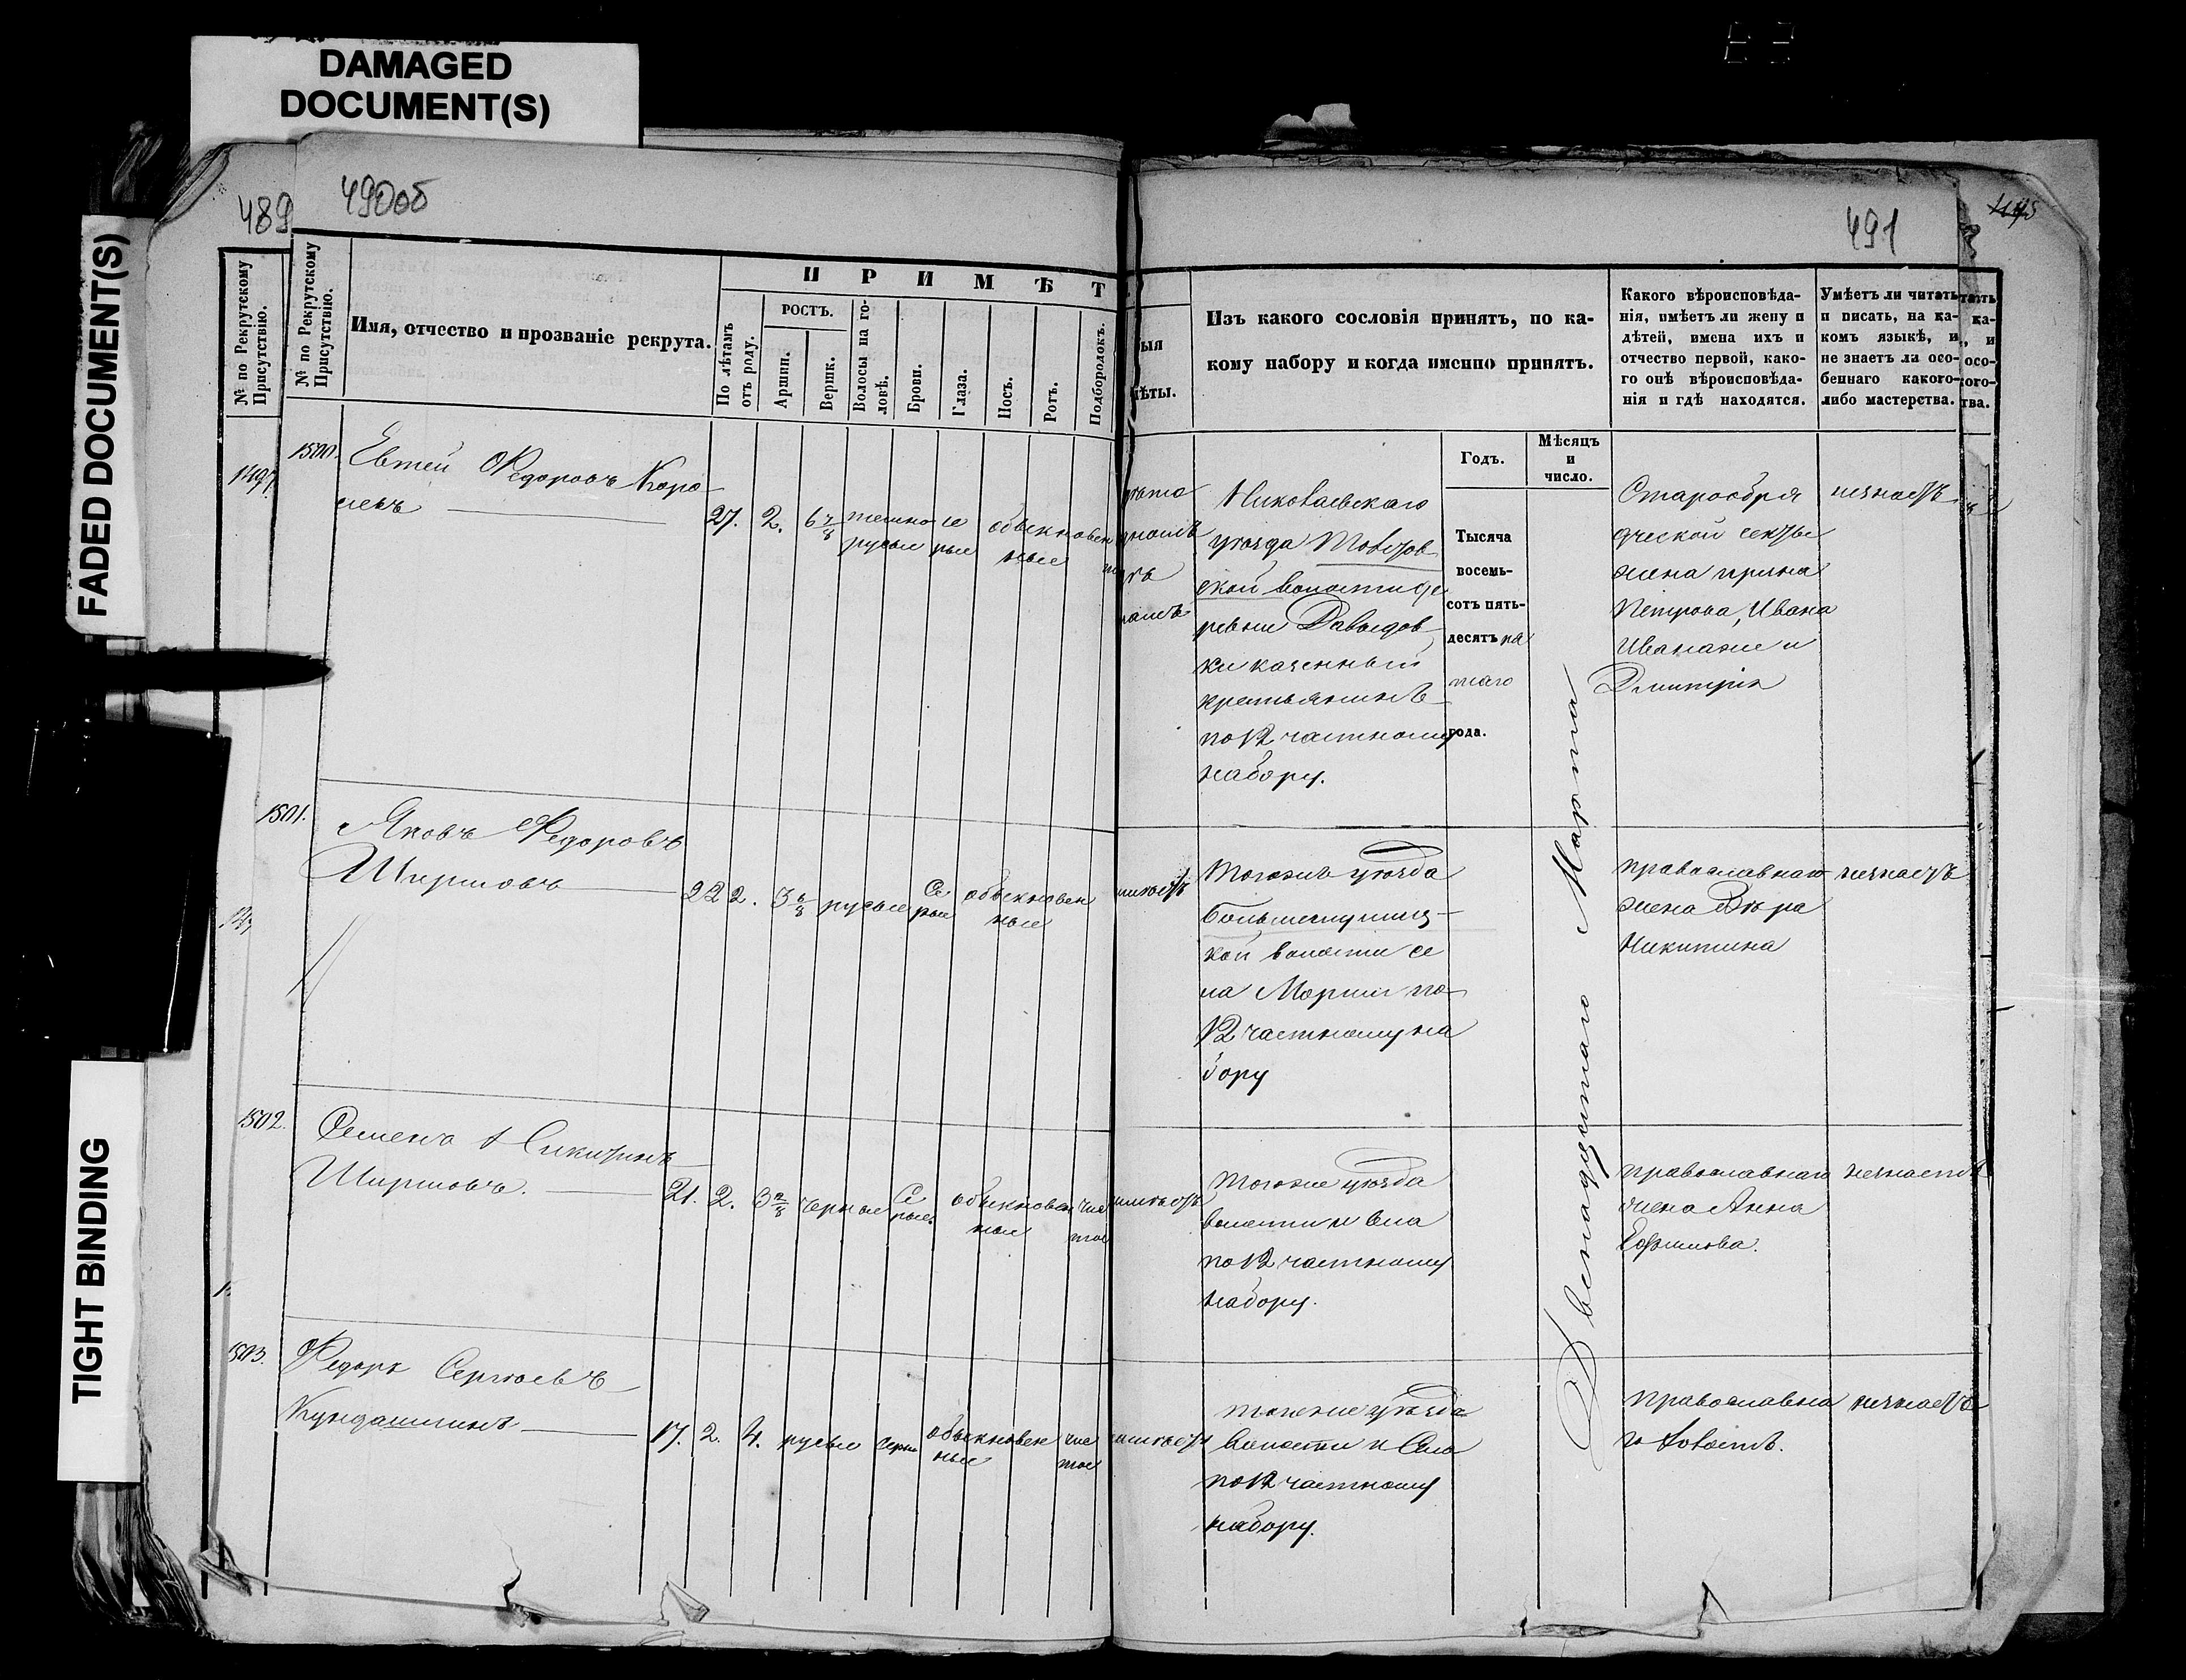 DAMAGED
DOCUMENT(S)
FADED DOCUMENT(S)
TIGHT BINDING
489
490об
491
№ по Рекрутскому
Присутствію.
№ по Рекрутскому
Присутствію.
Имя, отчество и прозваніе рекрута.
ПРИМѢТ
По лѣтамъ
отъ роду.
РОСТЪ.
Аршин.
Вершк.
Волосы на го-
ловѣ.
Брови.
Глаза.
Носъ.
Ротъ.
Подбородокъ.
ыя
ѣты.
Изъ какого сословія принятъ, по ка-
кому набору и когда именно принятъ.
Какого вѣроисповѣда-
нія, имѣетъ ли жену и
дѣтей, имена ихъ и
отчество первой, како-
го онѣ вѣроисповѣда-
нія и гдѣ находятся.
Умѣетъ ли читать
и писать, на ка-
комъ языкѣ, и
не знаетъ ли осо-
беннаго какого-
либо мастерства.
тать
ка-
и
осо-
ого-
тва.
Годъ.
Мѣсяцъ
и
число.
1497
1500.
Евтей Федоровъ Коро-
левъ
27. 2. 6 7/8
темно
русые
се
рые
обыкновен
ные
Николаевскаго
уѣзда
ской волости де
ревни Давыдов
ки казенный
крестьянинъ
по 12 частному
набору.
Тысяча
восемь-
сотъ пять-
десятъ пя
таго
года.
Двенадцатаго Марта
Старообря
дческой секты
жена Ирина
Петрова, Ивана
Ивана же и
Дмитрія
незнаетъ
1501.
Яковъ Федоровъ
Ширшовъ
22 2. 3 6/8 русые
Се
рые
обыкновен
ные
Тогоже уѣзда
кой волости се
ла Моршн по
12 частному на
бору
православнаго
жена Вѣра
Никитина
незнаетъ
1502.
Семенъ Никитинъ
Ширшовъ.
21. 2. черные
Се
рые
обыкновен
ные
чис
тое
Тогоже уѣзда
волости и села
по 12 частному
набору.
православнаго
жена Анна
Ефимова.
незнаетъ
1503.
Федоръ Сергѣевъ
Кундашкинъ
17. 2. 4. русые
обыкновен
ные
чис
тое
тогоже уѣзда
волости и села
по 12 частному
набору.
православна
го холостъ.
незнаетъ